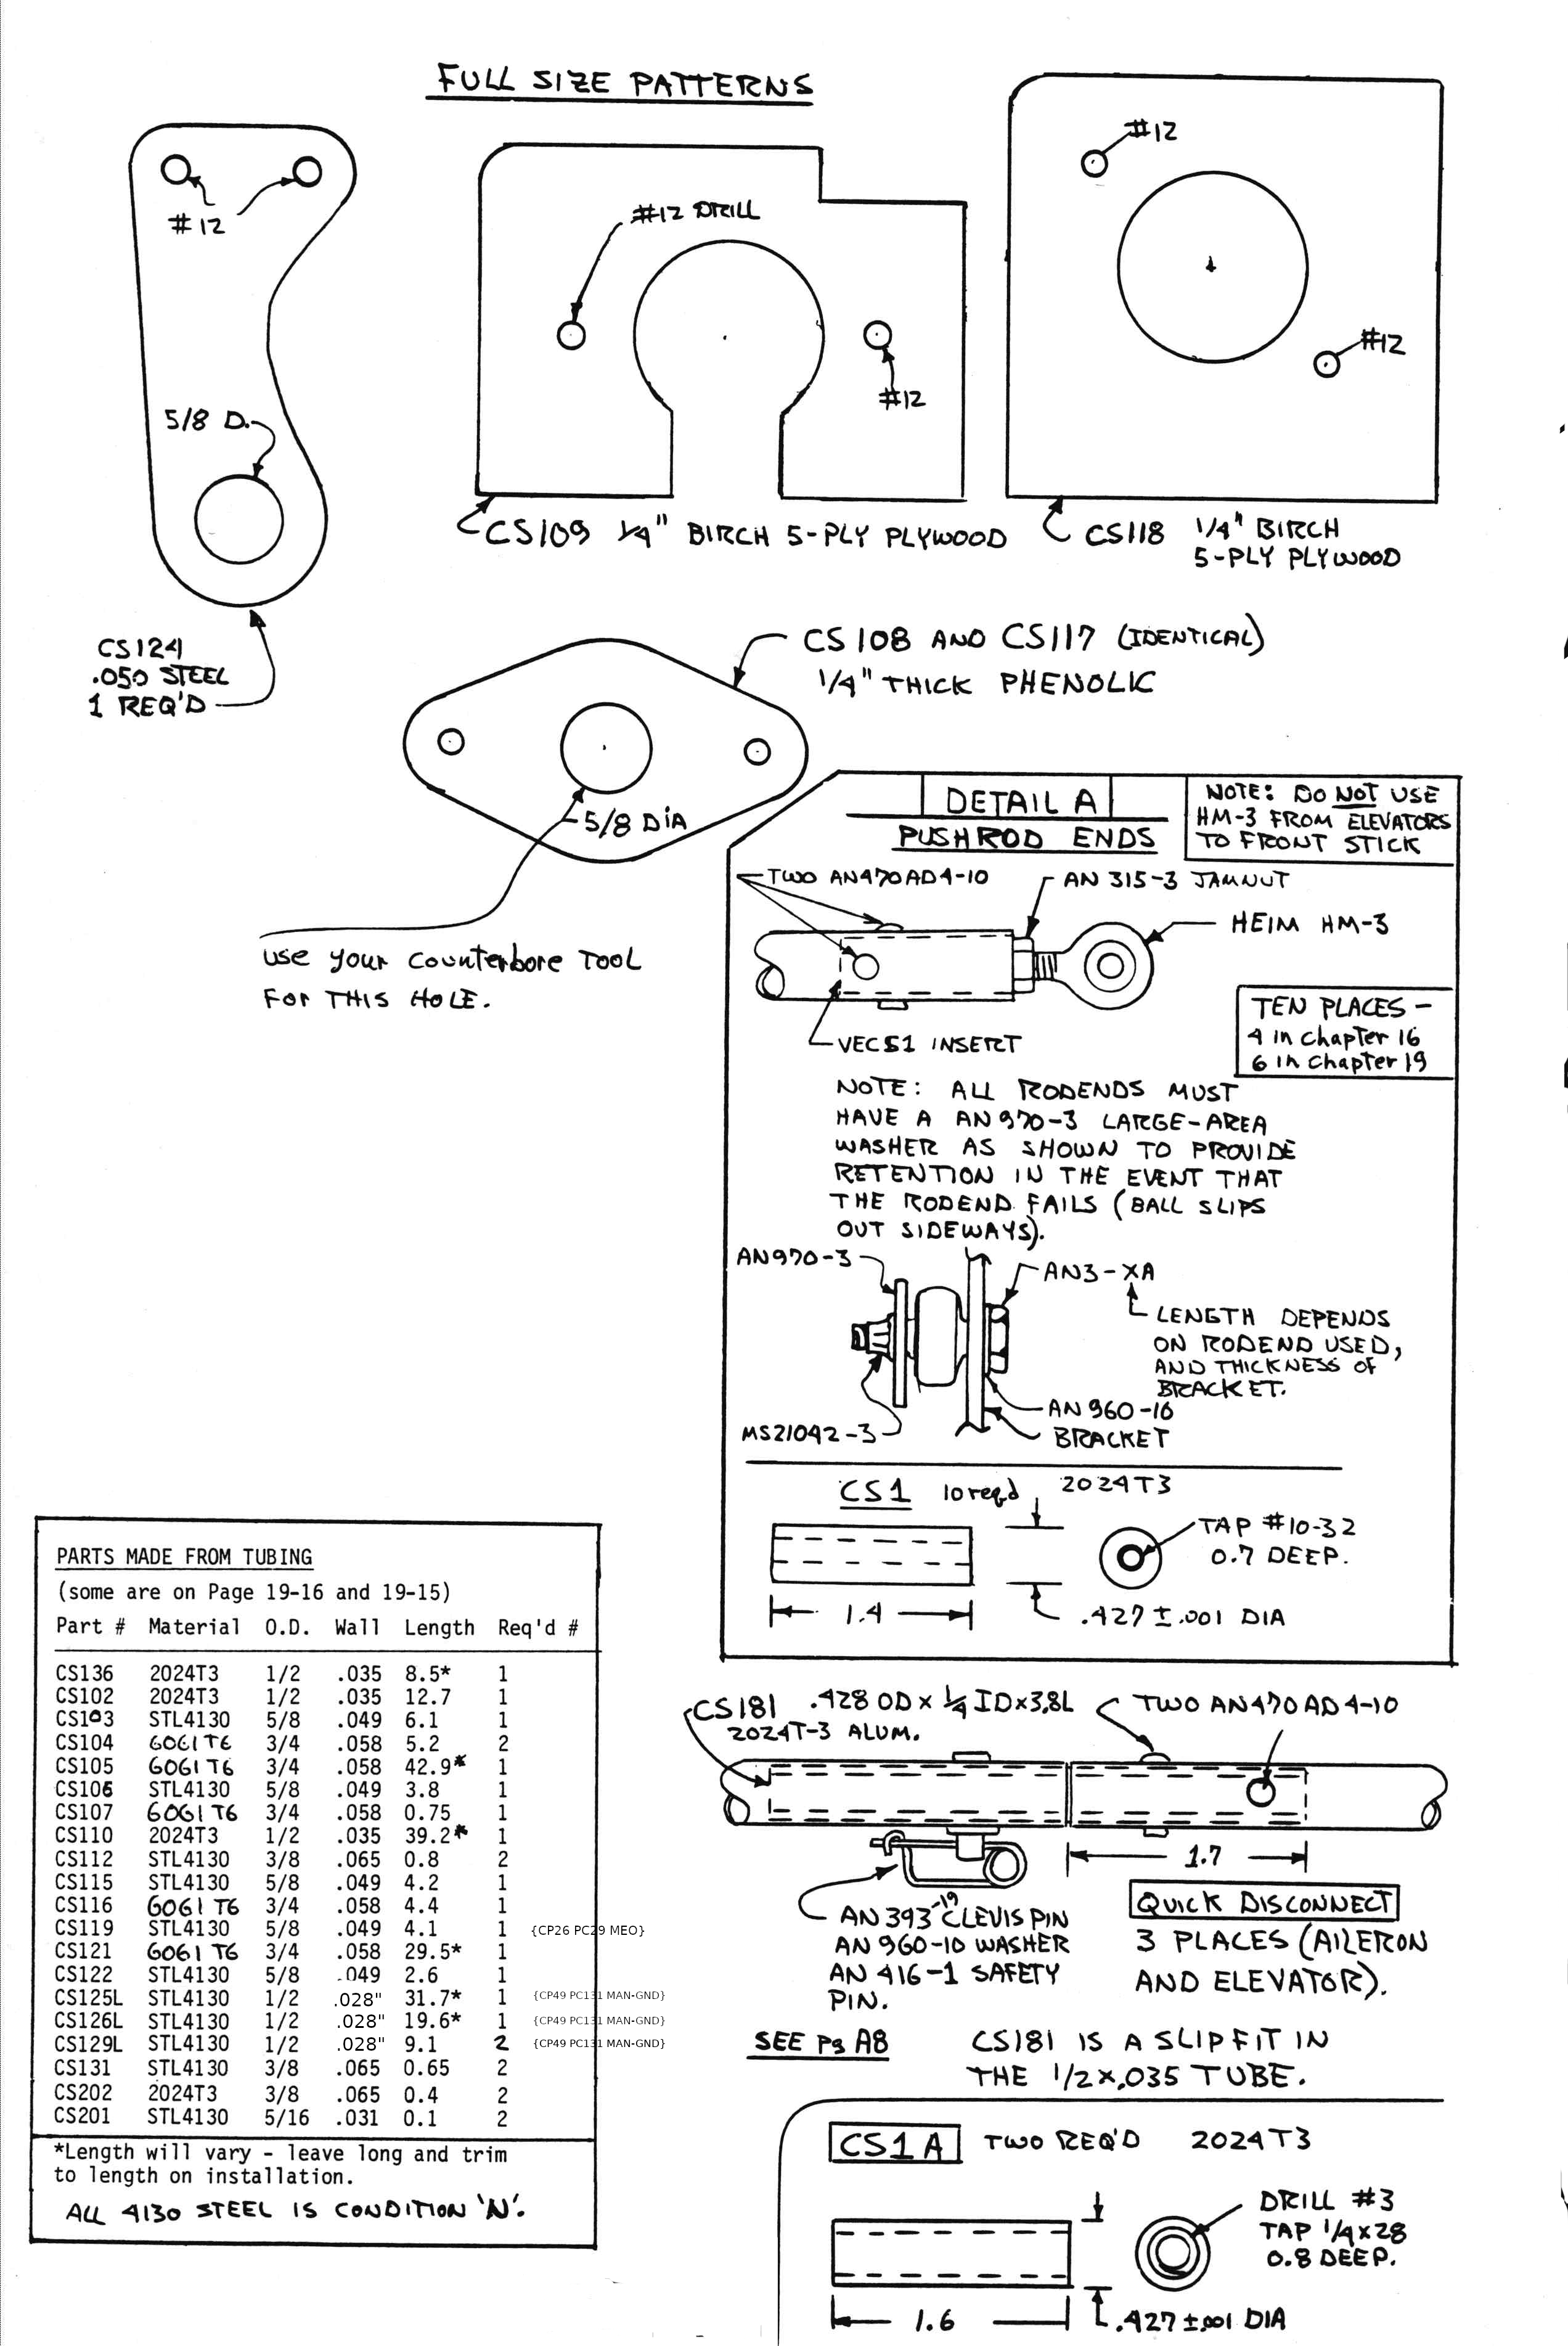 FULL SIZE PATTERNS
#12
#12
#12 DRILL
#12
#12
#12
5/8 D.
CS109 1/4" BIRCH 5-PLY PLYWOOD
CS118 1/4" BIRCH
5-PLY PLYWOOD
CS124
.050 STEEL
1 REQ'D
CS108 AND CS117 (IDENTICAL)
1/4" THICK PHENOLIC
5/8 DIA
USE YOUR COUNTERBORE TOOL
FOR THIS HOLE.
DETAIL A
PUSHROD ENDS
NOTE: DO NOT USE
HM-3 FROM ELEVATORS
TO FRONT STICK
TWO AN470AD4-10
AN 315-3 JAMNUT
HEIM HM-3
VECS1 INSERT
TEN PLACES -
4 in Chapter 16
6 in Chapter 19
NOTE: ALL RODENDS MUST
HAVE A AN970-3 LARGE-AREA
WASHER AS SHOWN TO PROVIDE
RETENTION IN THE EVENT THAT
THE RODEND FAILS (BALL SLIPS
OUT SIDEWAYS).
AN970-3
AN3-XA
LENGTH DEPENDS
ON RODEND USED,
AND THICKNESS OF
BRACKET.
AN960-10
BRACKET
MS21042-3
CS1 10 req'd 2024T3
TAP #10-32
0.7 DEEP.
1.4
.427 ±.001 DIA
PARTS MADE FROM TUBING
(some are on Page 19-16 and 19-15)
Part # Material O.D. Wall Length Req'd #
CS136 2024T3 1/2 .035 8.5* 1
CS102 2024T3 1/2 .035 12.7 1
CS103 STL4130 5/8 .049 6.1 1
CS104 6061T6 3/4 .058 5.2 2
CS105 6061T6 3/4 .058 42.9* 1
CS106 STL4130 5/8 .049 3.8 1
CS107 6061T6 3/4 .058 0.75 1
CS110 2024T3 1/2 .035 39.2* 1
CS112 STL4130 3/8 .065 0.8 2
CS115 STL4130 5/8 .049 4.2 1
CS116 6061T6 3/4 .058 4.4 1
CS119 STL4130 5/8 .049 4.1 1 {CP26 PC29 MEO}
CS121 6061T6 3/4 .058 29.5* 1
CS122 STL4130 5/8 .049 2.6 1
CS125L STL4130 1/2 .028" 31.7* 1 {CP49 PC131 MAN-GND}
CS126L STL4130 1/2 .028" 19.6* 1 {CP49 PC131 MAN-GND}
CS129L STL4130 1/2 .028" 9.1 2 {CP49 PC131 MAN-GND}
CS131 STL4130 3/8 .065 0.65 2
CS202 2024T3 3/8 .065 0.4 2
CS201 STL4130 5/16 .031 0.1 2
*Length will vary - leave long and trim
to length on installation.
ALL 4130 STEEL IS CONDITION 'N'.
CS181 .428 OD x 1/4 ID x 3.8L
2024T-3 ALUM.
TWO AN470AD4-10
1.7
AN 393-19 CLEVIS PIN
AN 960-10 WASHER
AN 416-1 SAFETY
PIN.
QUICK DISCONNECT
3 PLACES (AILERON
AND ELEVATOR).
SEE Pg A8
CS181 IS A SLIP FIT IN
THE 1/2 x .035 TUBE.
CS1A TWO REQ'D 2024T3
DRILL #3
TAP 1/4x28
0.8 DEEP.
1.6
.427 ±.001 DIA